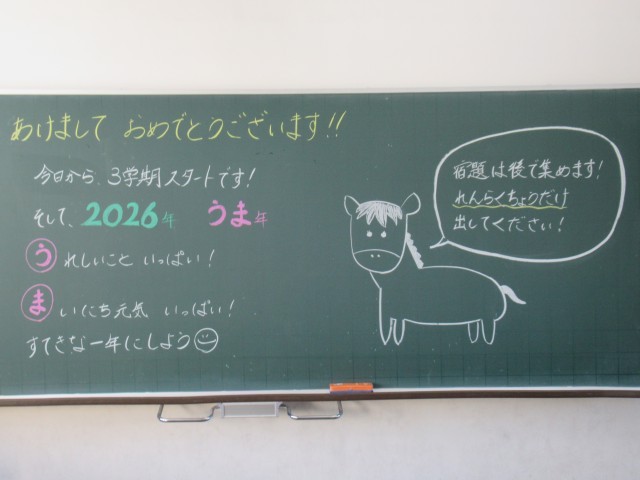 あけまして おめでとうございます!!
今日から、3学期スタートです!
そして、2026年 うま年
うれしいこと いっぱい!
まいにち元気 いっぱい!
すてきな一年にしよう
宿題は後で集めます!
れんらくちょうだけ
出してください!